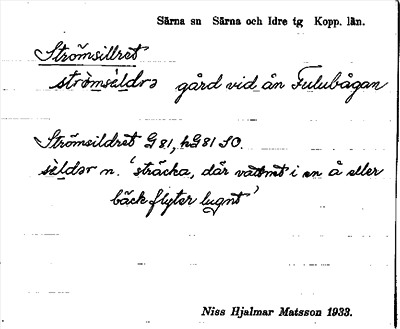 Särna sn Särna och Idre tg Kopp. län.
Strömsillret
strò̀msèldrə gård vid ån Fulubågan
Strömsildret G 81, hG81 SO.
sèldər n. 'sträcka, där vattnet i en å eller
bäck flyter lugnt'
Niss Hjalmar Matsson 1933.